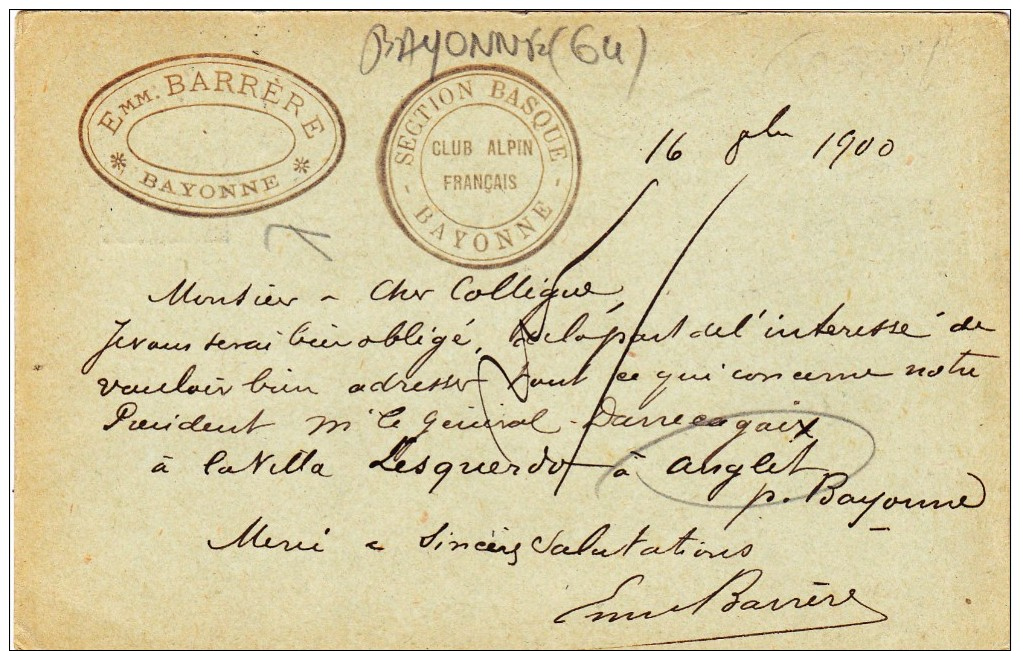 BAYONNE (64)
EMM. BARRÈRE
* BAYONNE *
SECTION BASQUE
CLUB ALPIN
FRANÇAIS
- BAYONNE -
16 8bre 1900
Monsieur & Cher Collègue
Je vous serai bien obligé, de la part de l'interessé de
vouloir bien adresser tout ce qui concerne notre
President Mr le Général Derrecagaix
à la Villa Lesquerdo à Anglet
p. Bayonne
Merci & Sincères Salutations
Emm Barrère